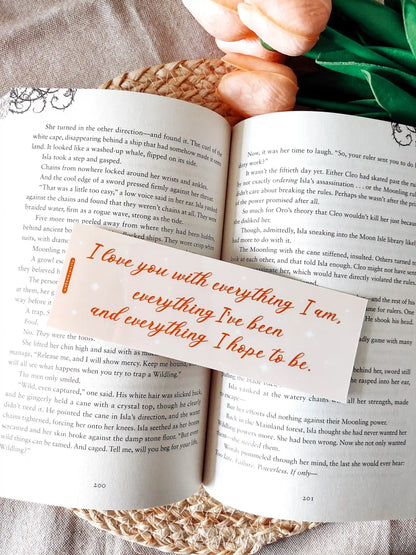 She turned in the other direction—and found it. The curl of the
white cape, disappearing behind a ship that had somehow made it onto
land. It looked like a washed-up whale, flipped on its side.
Isla took a step and gasped.
Chains from nowhere locked around her wrists and ankles.
And the cool edge of a sword pressed firmly against her throat.
"That was a little too easy," a low voice said in her ear.
against the chains and found that they weren't chains at all. They were
braided water, firm as a rogue wave, strong as the
Five more men peeled away from
behind ancient bowed
A growl
they believed
The person
at them, her
A trap,
Found
No. They were the
She lifted her chin high and said with as
mustage, "Release me, and I will show mercy. Keep me bound,
will all see what happens when you try to trap a Wildling."
The men only smiled.
"Wild, even captured," one said. His white hair was slicked back,
and he gingerly held a cane with a crystal top, though he clearly
didn't need it. He pointed the cane in Isla's direction, and the water
chains tightened, forcing her onto her knees. Isla seethed as her bones
screamed and her skin broke against the damp stone floor. "But even
wild things can be tamed. And caged. Tell me, will you beg for your life,
Wildling?"
200
Now, it was her time to laugh. "So, your ruler sent you to do
work?"
It wasn't the fiftieth day yet. Either Cleo had skated past the rules
by not exactly ordering Isla's assassination . . . or the Moonling ruler
didn't care about breaking the rules. Perhaps she wasn't after the prize
the power promised after all.
So much for Oro's theory that Cleo wouldn't kill her just because
she disliked her.
Though, admittedly, Isla sneaking into the Moon Isle library
had more to do with it.
The Moonling with the cane stiffened, insulted. Others turned to
look at each other, and that told Isla enough. Cleo might not have sent
would have directly violated the rules
he rasped into her ear,
Isla
raked at the watery chains
But her efforts did nothing against their Moonling power.
back in the Mainland forest, Isla thought she had never wanted her
Wildling powers more. She had been wrong. Now she not only wanted
them—she needed them.
Words pummeled through her mind, the last she would ever hear:
Too late. Failure. Powerless. If only—
201
I love you with everything I am,
everything I've been
and everything I hope to be.